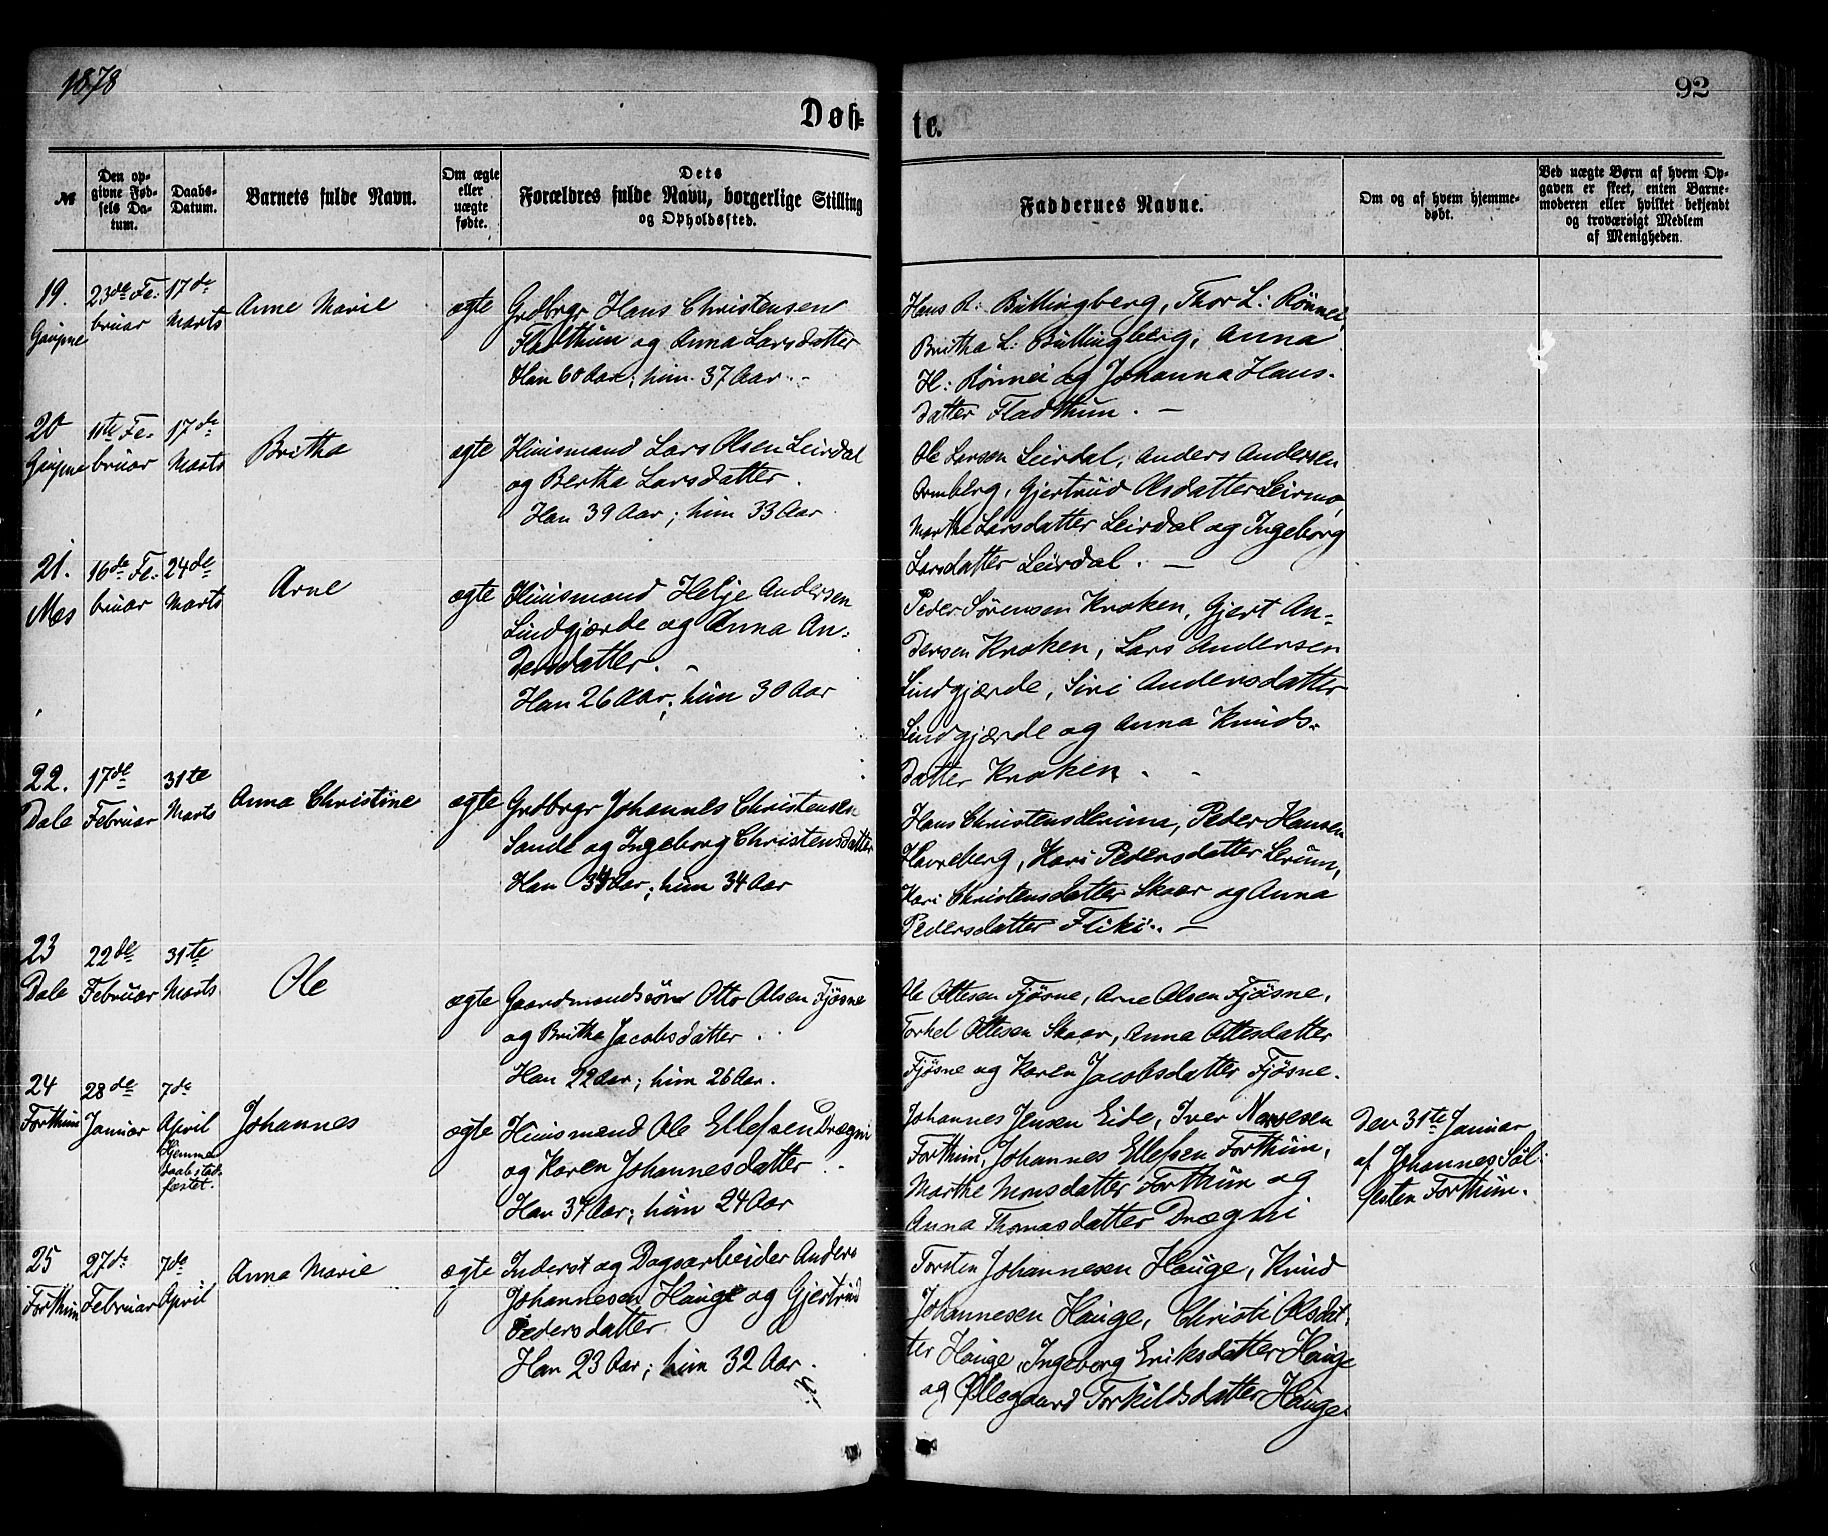 1878
92
Døb-
te.
№
Den op-
givne Fød-
sels Da-
tum.
Daabs-
Datum.
Barnets fulde Navn.
Om ægte
eller
uægte
fødte.
Dets
Forældres fulde Navn, borgerlige Stilling
og Opholdssted.
Faddernes Navne.
Om og af hvem hjemme-
døbt.
Ved uægte Børn af hvem Op-
gaven er skeet, enten Barne-
moderen eller hvilket bekjendt
og troværdigt Medlem
af Menigheden.
19.
Gaupne
23de Fe-
bruar
17de
Marts
Anne Marie
ægte
Grdbrgr Hans Christensen
Fladthun og Anna Larsdatter
Han 60 Aar; hun 37 Aar.
Hans R: Bullingberg, Thor L: Rönnei,
Britha L: Bullingberg, Anna
H: Rönnei og Johanna Hans-
datter Fladthun. —
20
Gaupne
11te Fe-
bruar
17de
Marts
Britha
ægte
Huusmand Lars Olsen Leirdal
og Bertha Larsdatter.
Han 39 Aar; hun 33 Aar.
Ole Larsen Leirdal, Anders Andersen
Ormberg, Gjertrud Olsdatter Leirmo,
Marthe Larsdatter Leirdal og Ingeborg
Larsdatter Leirdal. —
21.
Næs
16de Fe-
bruar
24de
Marts
Arne
ægte
Huusmand Helje Andersen
Lindgjærde og Anna An-
dersdatter. -
Han 26 Aar; hun 30 Aar
Peder Sörensen Kroken, Gjert An-
dersen Kroken, Lars Andersen
Lindgjærde, Siri Andersdatter
Lindgjærde og Anna Knuds-
datter Kroken. -
22.
Dale
17de
Februar
31te
Marts
Anna Christine
ægte
Grdbrgr Johannes Christensen
Sande og Ingeborg Christensdatter
Han Aar; hun 34 Aar
Hans Christens Lerum, Peder Hansen
Havreberg, Kari Pedersdatter Lerum,
Kari Christensdatter Skaar og Anna
Pedersdatter Fliki. —
23
Dale
22de
Februar
31te
Marts
Ole
ægte
Gaardmandssön Otto Olsen Fjösne
og Britha Jacobsdatter.
Han 22 Aar; hun 26 Aar.
Ole Ottesen Fjösne, Arne Olsen Fjösne,
Torkel Ottesen Skaar, Anna Ottesdatter
Fjösne og Karen Jacobsdatter Fjösne.
24
Forthun
28de
Januar
7de
April
Hjemme-
daab stad-
fæstet.
Johannes
ægte
Huusmand Ole Ellefsen Drægni
og Karen Johannesdatter.
Han 37 Aar; hun 24 Aar
Johannes Jensen Eide, Iver
Forthun, Johannes Ellefsen Forthun,
Marthe Monsdatter Forthun og
Anna Thomasdatter Drægni
Den 31te Januar
af Johannes Sül-
festen Forthun.
25
Forthun
27de
Februar
7de
April
Anna Marie
ægte
Inderst og Dagsarbeider Anders
Johannesen Hauge og Gjertrud
Pedersdatter.
Han 23 Aar; hun 32 Aar.
Torsten Johannesen Hauge, Knud
Johannesen Hauge, Christi Olsdat-
ter Hauge, Ingeborg Eriksdatter Hauge
og Øllegaard Torkildsdatter Hauge.